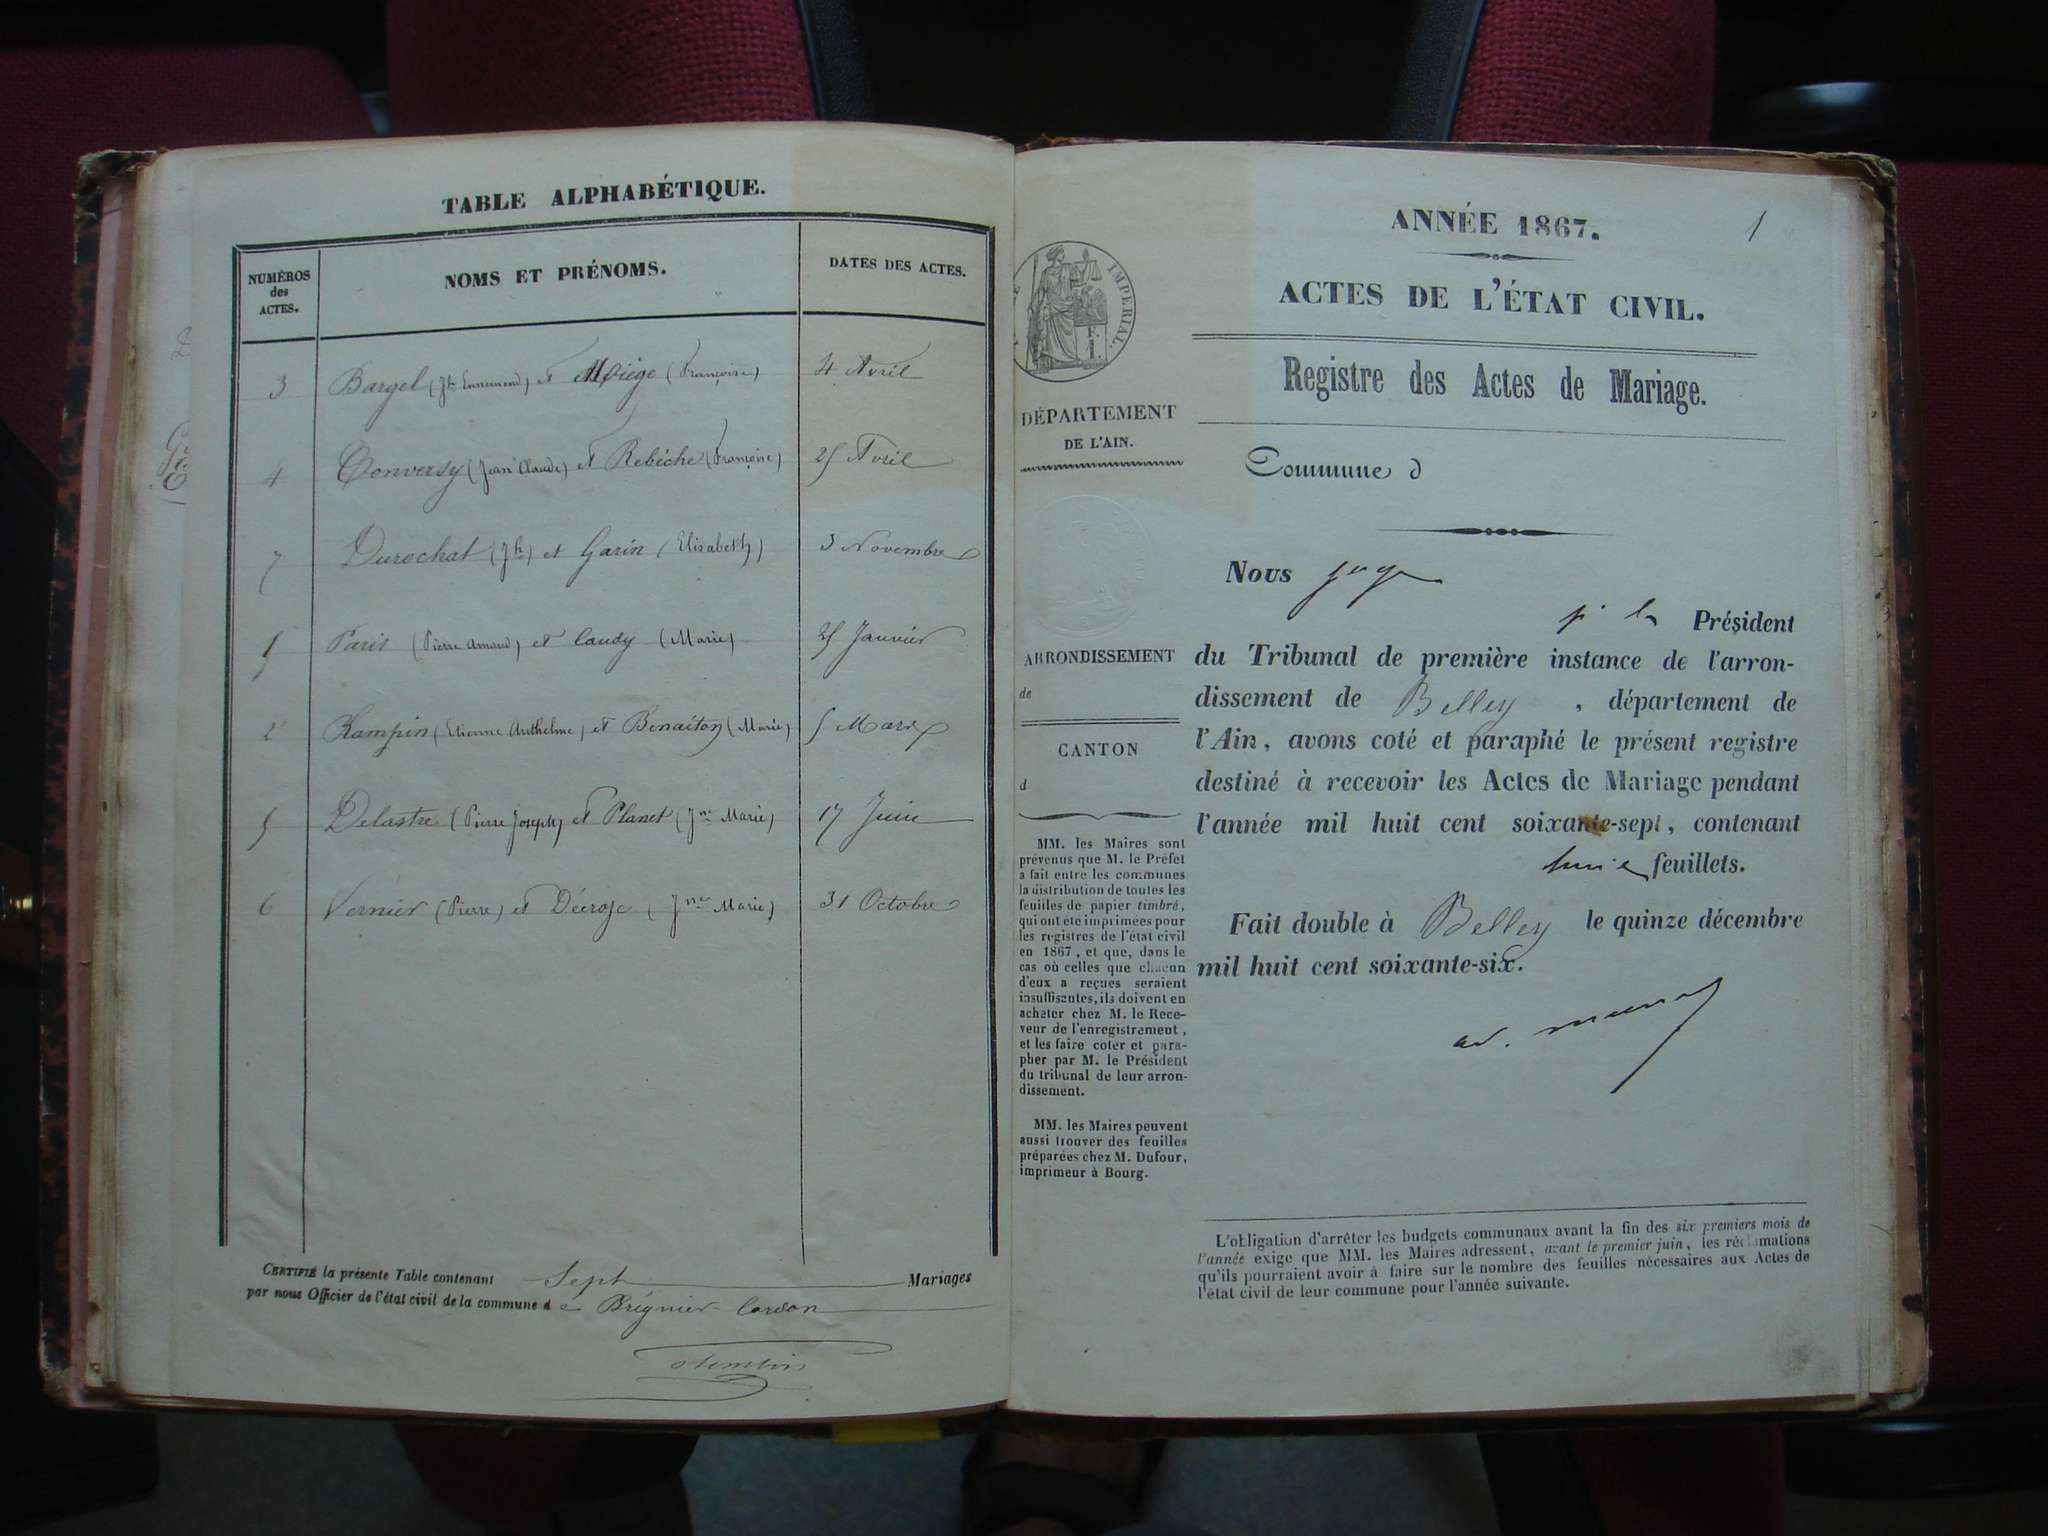 TABLE ALPHABÉTIQUE.
NUMÉROS des ACTES. NOMS ET PRÉNOMS. DATES DES ACTES.
3 Bargel (Jh Ennemond) et Miège (Françoise) 4 Avril
4 Conversy (Jean Claude) et Rebèche (Françoise) 25 Avril
7 Durochat (Jh) et Garin (Elisabeth) 3 Novembre
1 Paris (Pierre Amand) et Caudy (Marie) 25 Janvier
2 Rampin (Etienne Anthelme) et Benaiton (Marie) 5 Mars
5 Delastre (Pierre Joseph) et Planet (Jne Marie) 17 Juin
6 Vernier (Pierre) et Décroze (Jne Marie) 31 Octobre
CERTIFIÉ la présente Table contenant Sept Mariages
par nous Officier de l'état civil de la commune de Brégnier-Cordon
1
ANNÉE 1867.
ACTES DE L'ÉTAT CIVIL.
Registre des Actes de Mariage.
IMPÉRIAL.
1 F.
DÉPARTEMENT
DE L'AIN.
Commune d
Nous juge
Président
ARRONDISSEMENT
de
CANTON
d
du Tribunal de première instance de l'arron-
dissement de Belley, département de
l'Ain, avons coté et paraphé le présent registre
destiné à recevoir les Actes de Mariage pendant
l'année mil huit cent soixante-sept, contenant
feuillets.
Fait double à Belley le quinze décembre
mil huit cent soixante-six.
MM. les Maires sont
prévenus que M. le Préfet
a fait entre les communes
la distribution de toutes les
feuilles de papier timbré,
qui ont été imprimées pour
les registres de l'état civil
en 1867, et que, dans le
cas où celles que chacun
d'eux a reçues seraient
insuffisantes, ils doivent en
acheter chez M. le Rece-
veur de l'enregistrement,
et les faire coter et para-
pher par M. le Président
du tribunal de leur arron-
dissement.
MM. les Maires peuvent
aussi trouver des feuilles
préparées chez M. Dufour,
imprimeur à Bourg.
L'obligation d'arrêter les budgets communaux avant la fin des six premiers mois de
l'année exige que MM. les Maires adressent, avant le premier juin, les réclamations
qu'ils pourraient avoir à faire sur le nombre des feuilles nécessaires aux Actes de
l'état civil de leur commune pour l'année suivante.